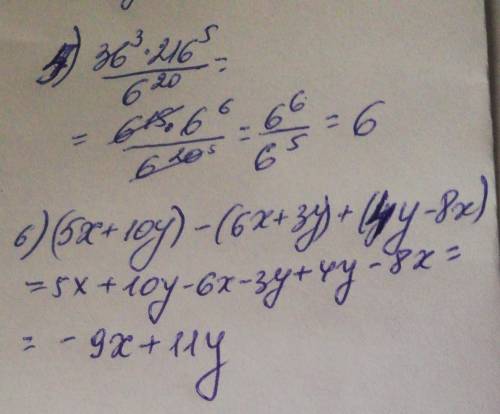 5) 36³·216⁵/6²⁰ =
= 6¹⁵·6⁶/6²⁰ ⁵ = 6⁶/6⁵ = 6
6) (5x+10y) - (6x+3y) + (4y-8x)
= 5x+10y-6x-3y+4y-8x =
= -9x+11y